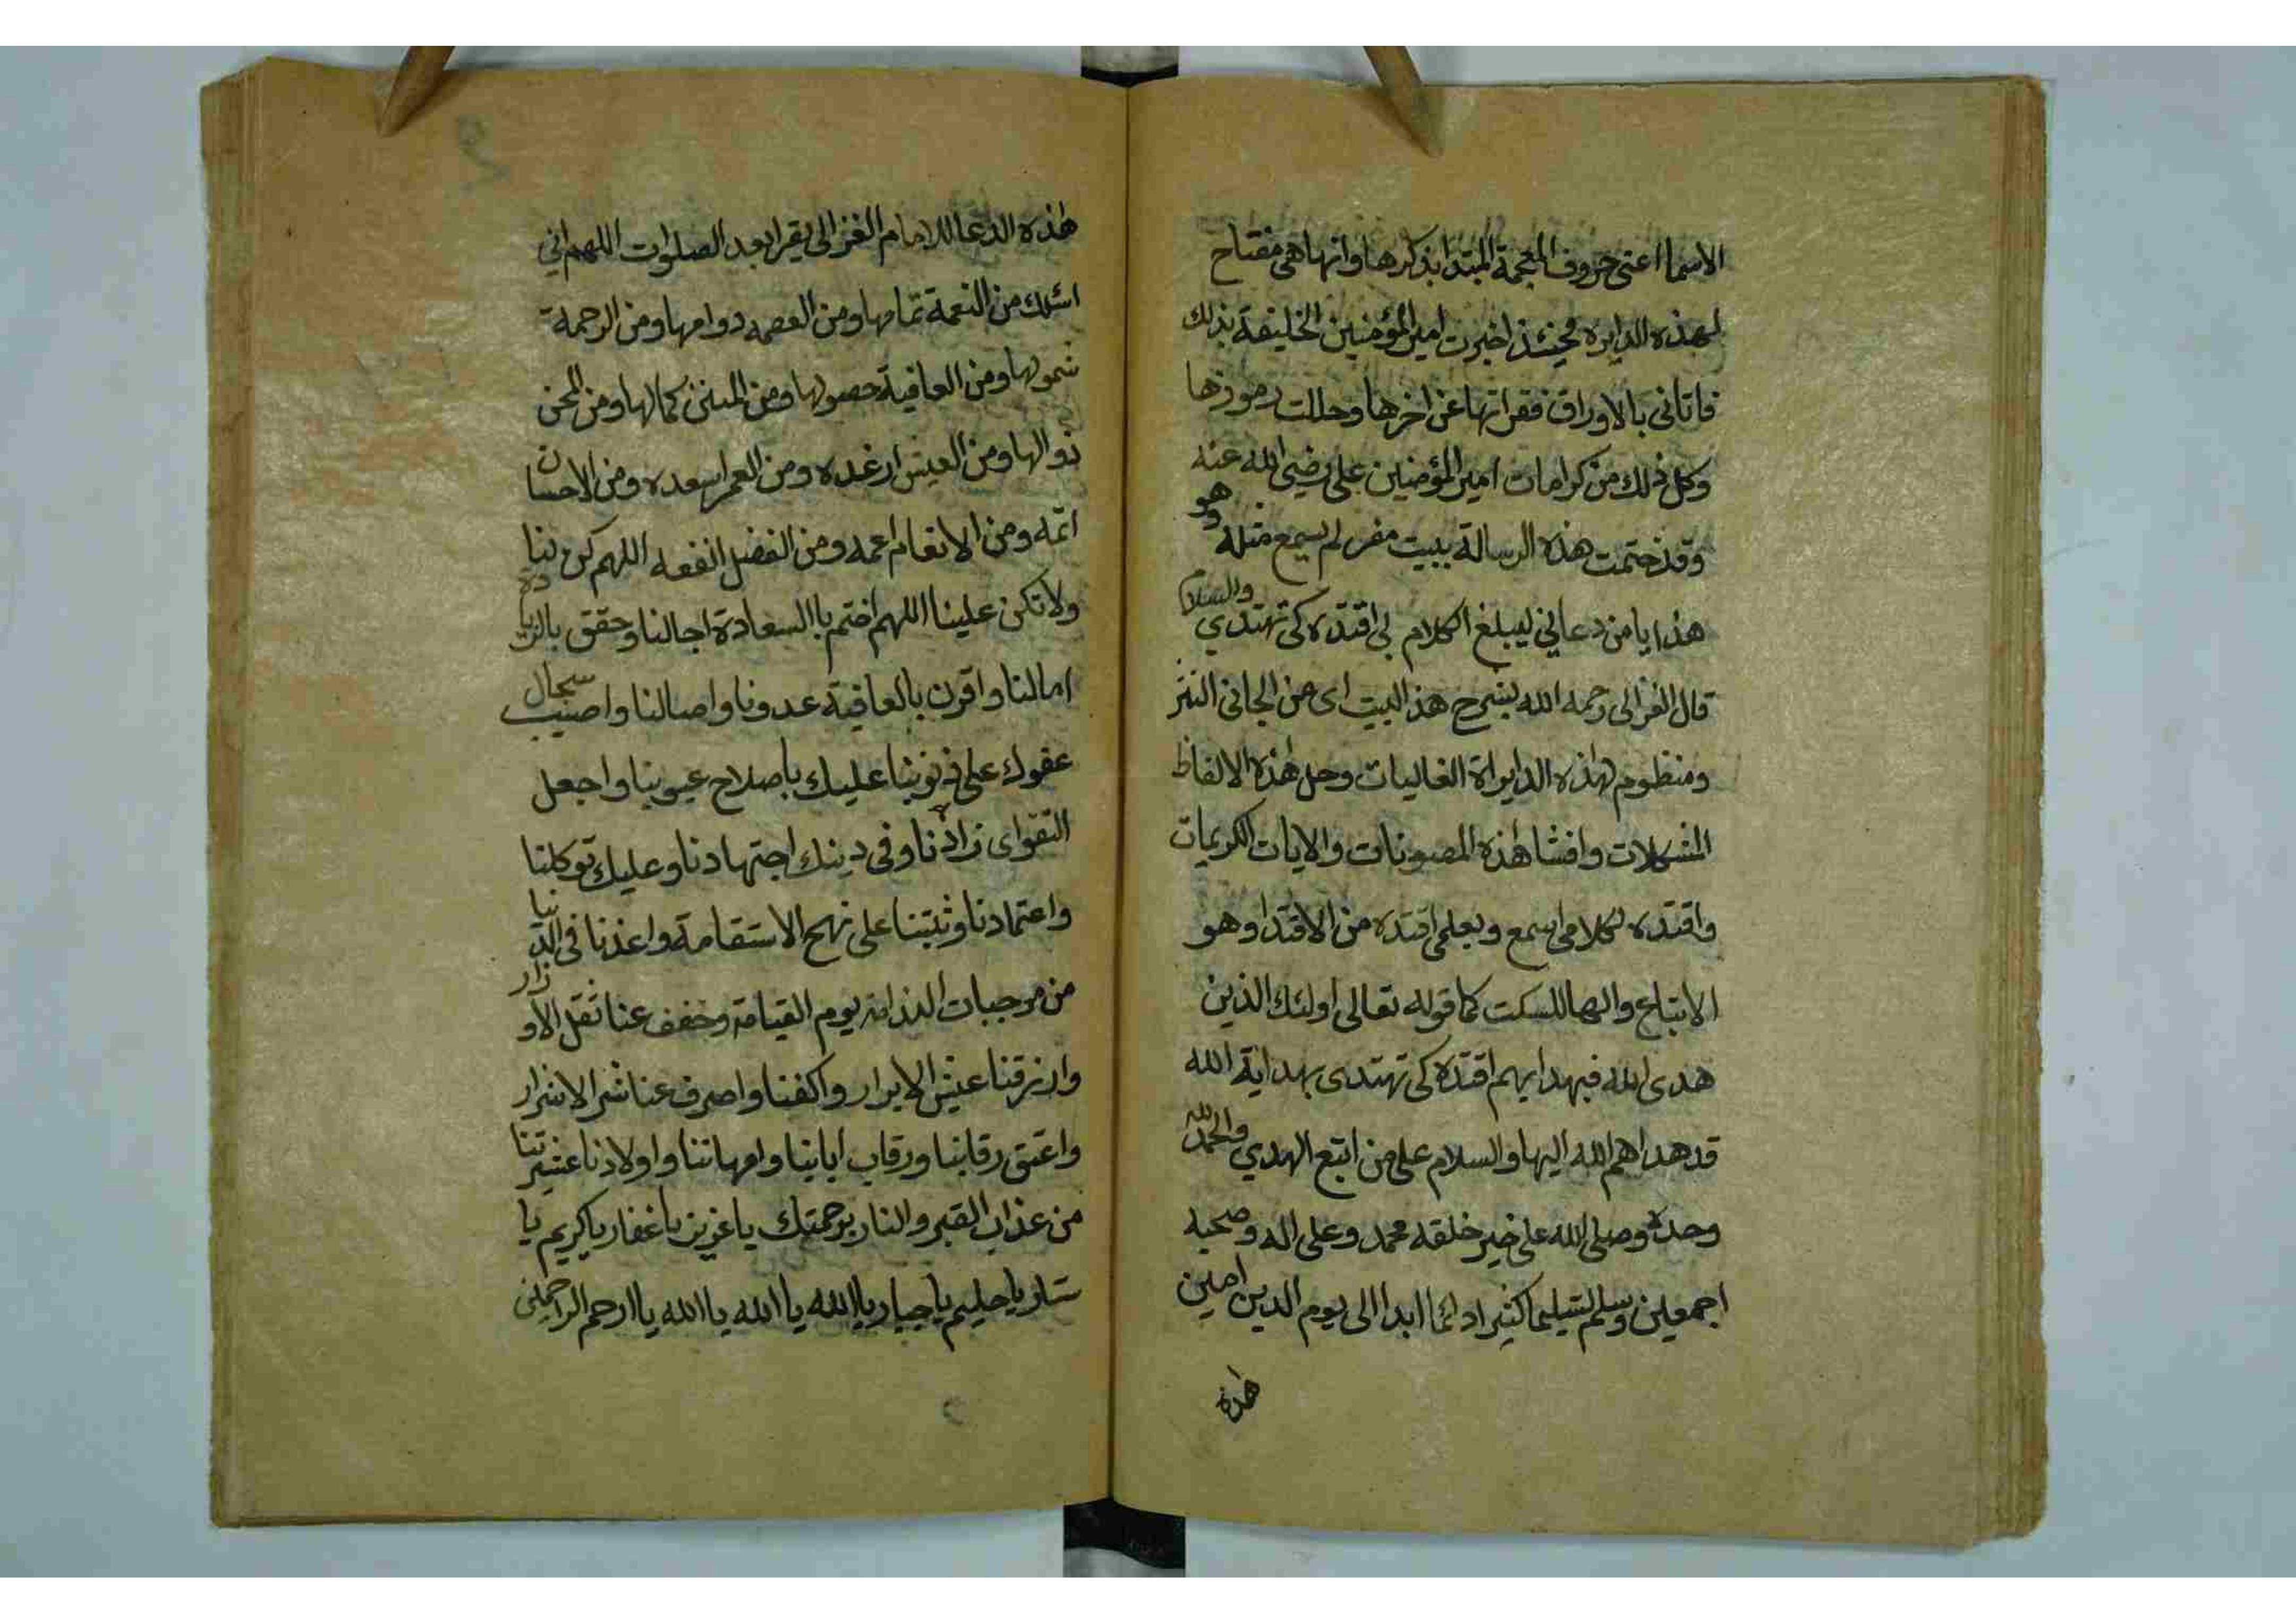 الاسما اعنى حروف المعجمة المبتدا بذكرها وانها هى مفتاح
لهذه الدايره فحينئذ اخبرت امير المؤمنين الخليفة بذلك
فاتانى بالاوراق فقراتها عن اخرها وحللت رموزها
وكل ذلك من كرامات امير المؤمنين على رضى الله عنه
وقد ختمت هذه الرسالة ببيت مفر لم يسمع مثله وهو
هذا يا من دعاني ليبلغ الكلام بى اقتده كى تهتدي والسلام
قال الغزالى رحمه الله بشرح هذ البيت اى من الجانى النثر
ومنظوم لهذه الدايراة الغاليات وحل هذه الالفاظ
المشكلات وافشا هذه المصونات والايات الكريمات
واقتده لكلامى اسمع وبعلمى اقتده من الاقتدا وهو
الاتباع والها للسكت كما قوله تعالى اولئك الذين
هدى الله فبهدايهم اقتده كى تهتدى بهداية الله
قد هداهم الله اليها والسلام على من اتبع الهدي والحمد لله
وحده وصلى الله على خير خلقه محمد وعلى اله وصحبه
اجمعين وسلم تسليما كثيرا دائما ابدا الى يوم الدين امين
هذه
هذه الدعا للامام الغزالى يقرا بعد الصلوات اللهم انى
اسئلك من النعمة تمامها ومن العصمه دوامها ومن الرحمة
شمولها ومن العافية حصولها ومن المنن كمالها ومن المحن
زوالها ومن العيش ارغده ومن العمر اسعده ومن الاحسان
اتمه ومن الانعام اعمه ومن الفضل انفعه اللهم كن لنا
ولا تكن علينا اللهم اختم باالسعادة اجالنا وحقق بالزيادة
امالنا واقرن بالعافية عدونا واصالنا واصبب سجال
عفوك على ذنوبنا عليك باصلاح عيوبنا واجعل
التقواى زادنا وفى دينك اجتهادنا وعليك توكلنا
واعتمادنا وثبتنا على نهج الاستقامة واعذنا فى الدنيا
من موجبات الندامة يوم القيامة وخفف عنا ثقل الاوزار
وارزقنا عيش الابرار واكفنا واصرف عنا شر الاشرار
واعتق رقابنا ورقاب ابائنا وامهاتنا واولادنا عشيرتنا
من عذاب القبر والنار برحمتك يا عزيز يا غفار يا كريم يا
ستار يا حليم يا جبار يا الله يا الله يا الله يا ارحم الراحمين